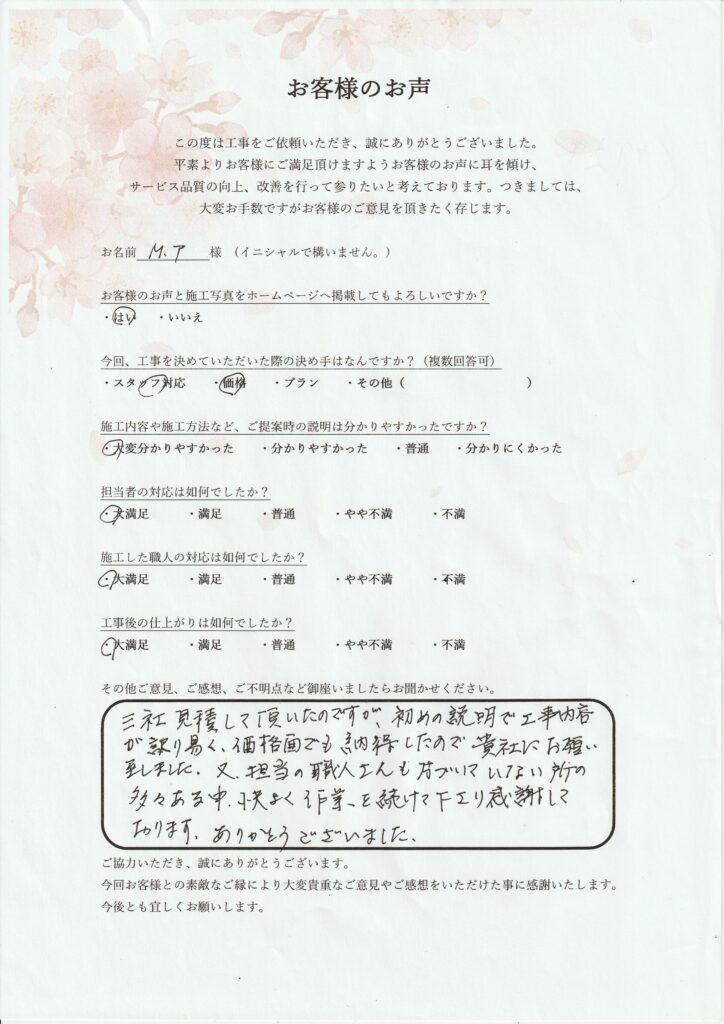 お客様のお声
この度は工事をご依頼いただき、誠にありがとうございました。
平素よりお客様にご満足頂けますようお客様のお声に耳を傾け、
サービス品質の向上、改善を行って参りたいと考えております。つきましては、
大変お手数ですがお客様のご意見を頂きたく存じます。
お名前 M.T 様 （イニシャルで構いません。）
お客様のお声と施工写真をホームページへ掲載してもよろしいですか？
・はい ・いいえ
今回、工事を決めていただいた際の決め手はなんですか？（複数回答可）
・スタッフ対応 ・価格 ・プラン ・その他（ ）
施工内容や施工方法など、ご提案時の説明は分かりやすかったですか？
・大変分かりやすかった ・分かりやすかった ・普通 ・分かりにくかった
担当者の対応は如何でしたか？
・大満足 ・満足 ・普通 ・やや不満 ・不満
施工した職人の対応は如何でしたか？
・大満足 ・満足 ・普通 ・やや不満 ・不満
工事後の仕上がりは如何でしたか？
・大満足 ・満足 ・普通 ・やや不満 ・不満
その他ご意見、ご感想、ご不明点など御座いましたらお聞かせください。
三社見積して頂いたのですが、初めの説明で工事内容
が訳り易く、価格面でも納得したので貴社にお願い
致しました。又、担当の職人さんも片づいていない所の
多々ある中、快よく作業を続けて下さり感謝して
おります。ありがとうございました。
ご協力いただき、誠にありがとうございます。
今回お客様との素敵なご縁により大変貴重なご意見やご感想をいただけた事に感謝いたします。
今後とも宜しくお願いします。